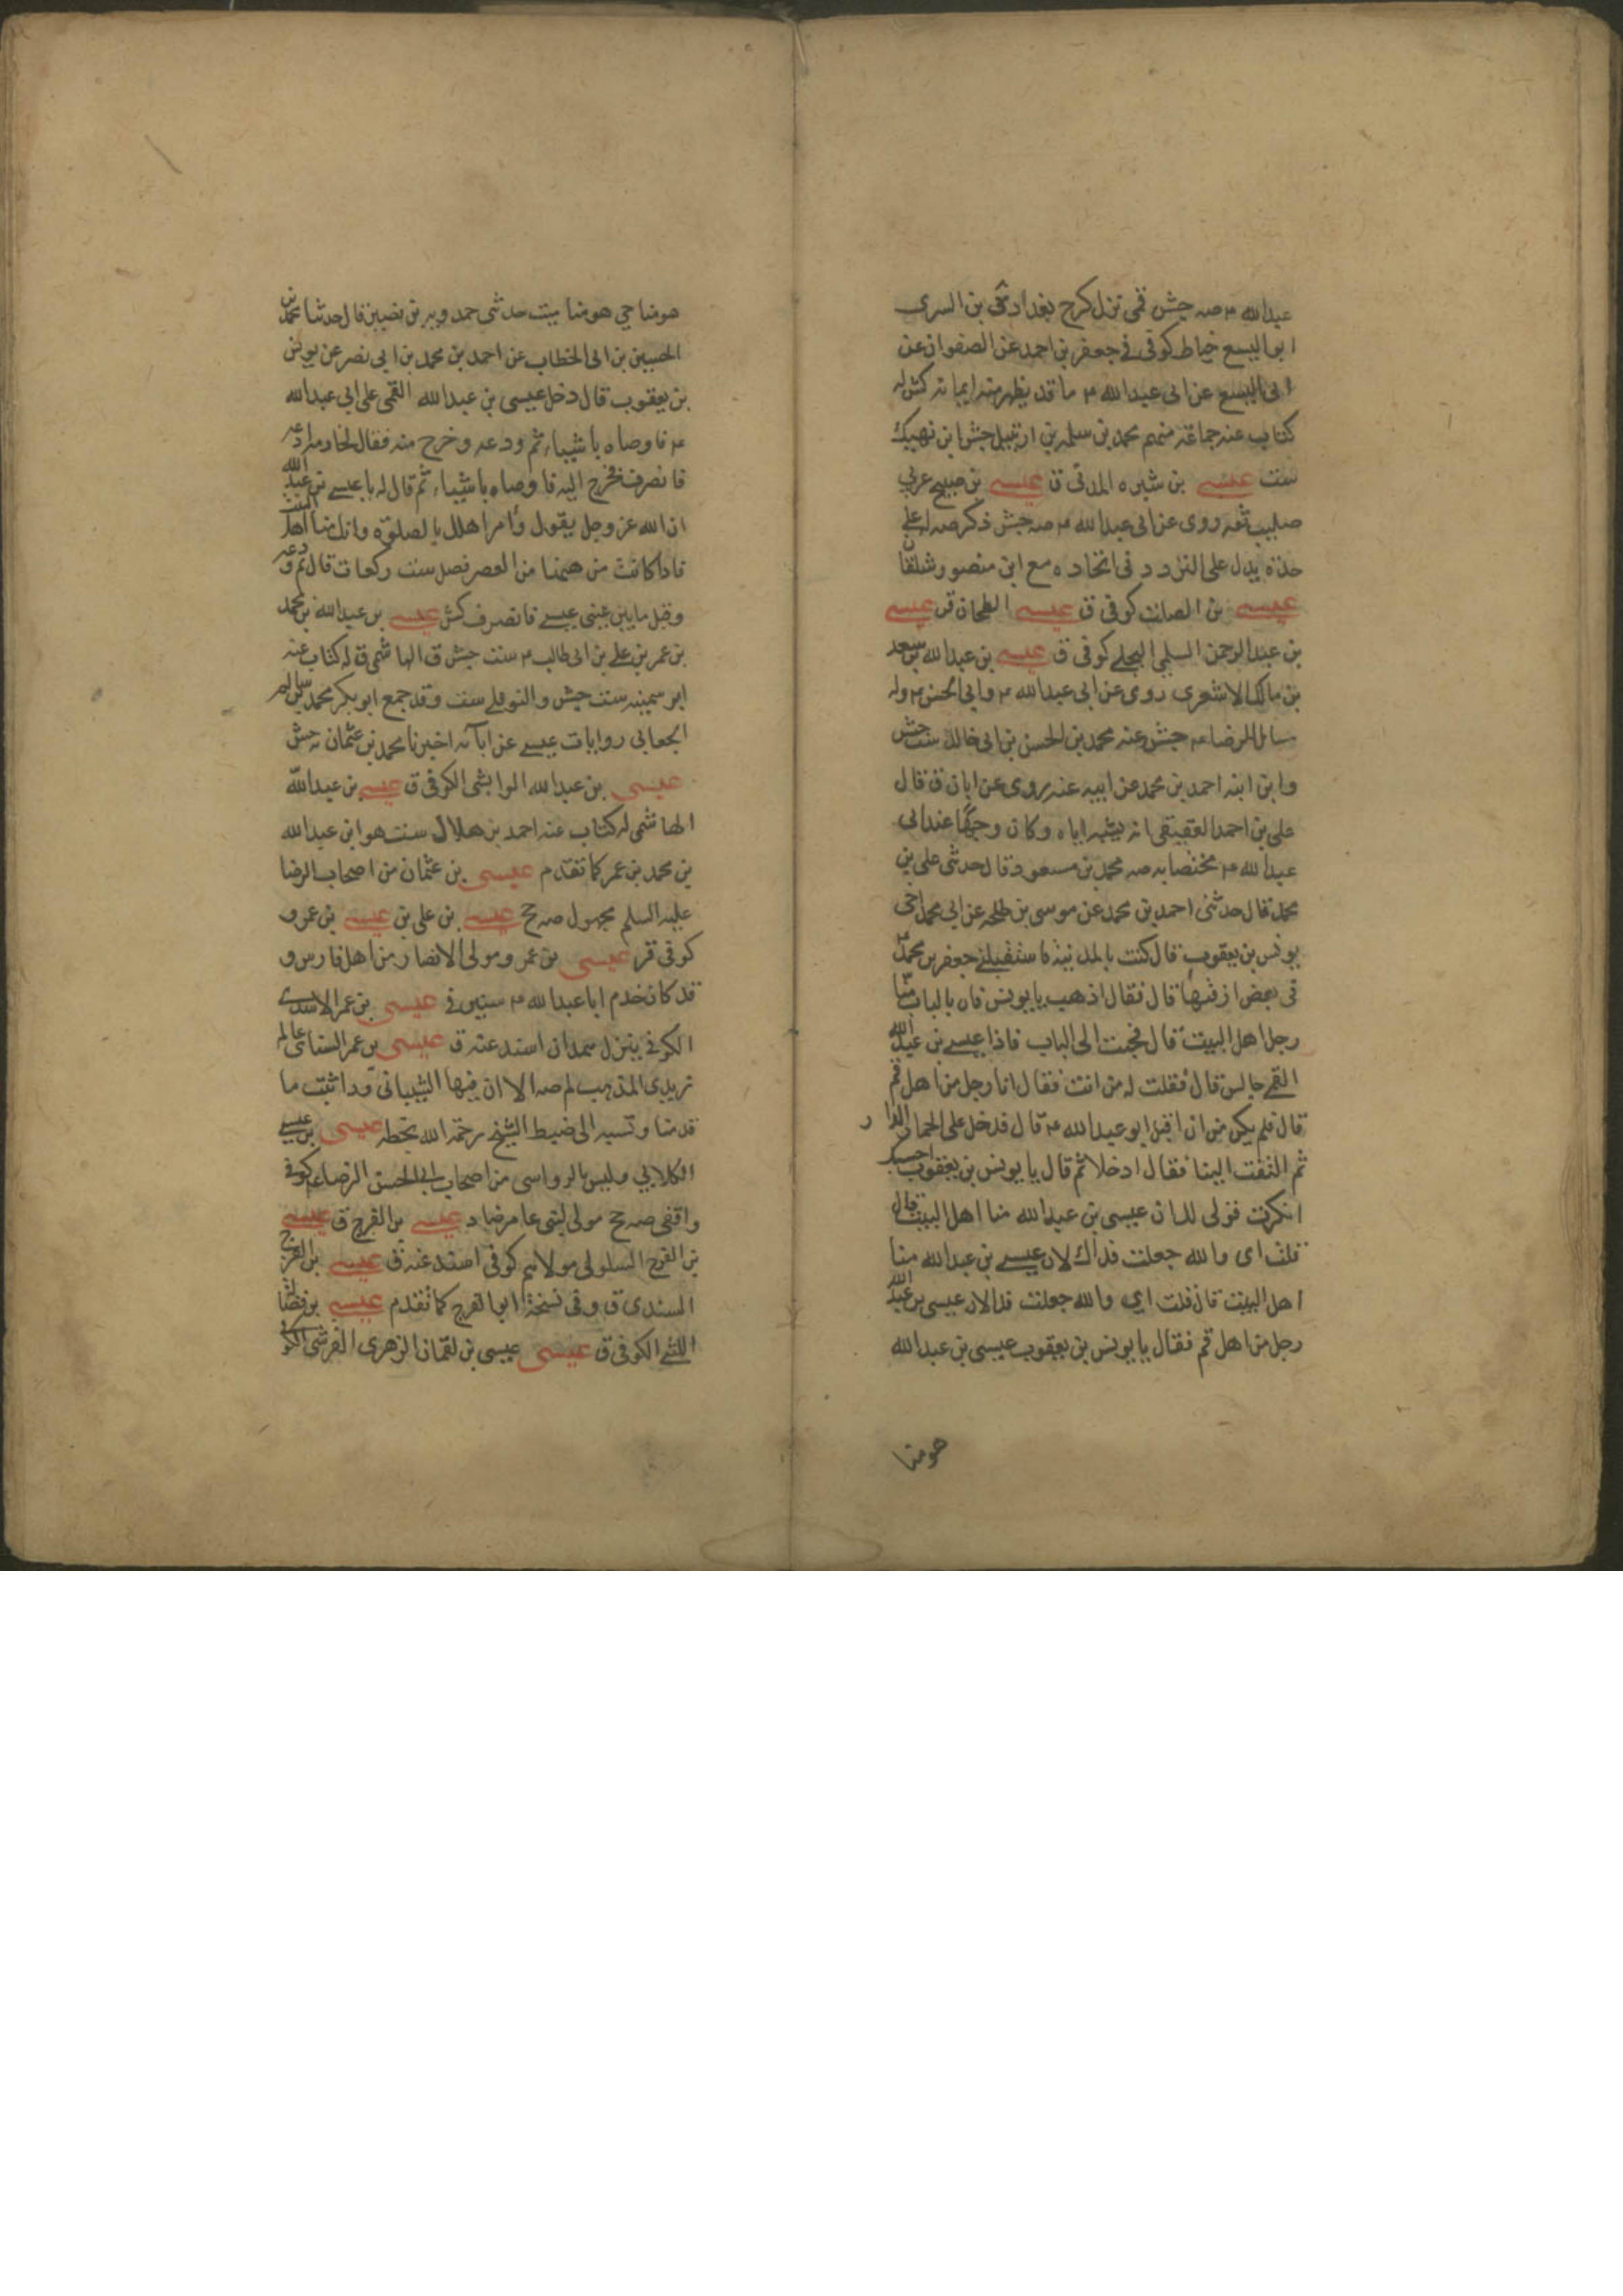 عبدالله ع صه جش قمی نزل کرخ بغداد بن السری
ابو الیسع خیاط کوفی جعفر بن احمد عن الصفوان عن
ابی الیسع عن ابی عبدالله ع ما قد یظهر منه ایمانه کش له
کتاب عنه جماعة منهم محمد بن سلمه بن ارتبیل جش ابن نهیک
ست عیسی بن شبره المدنی ق عیسی بن صبیح عربی
صلیب ثقه روی عن ابی عبدالله ع صه جش ذکر صه له علی
حدة یدل علی التردد فی اتحاده مع ابن منصور شلقان
عیسی بن الصلت کوفی ق عیسی الطحان قر عیسی
بن عبدالرحمن السلمی البجلی کوفی ق عیسی بن عبدالله بن سعد
بن مالک الاشعری روی عن ابی عبدالله ع وابی الحسن ع وله
مسائل للرضا ع جش عنه محمد بن الحسن بن ابی خالد ست جش
وابن ابنه احمد بن محمد عن ابیه عنه روی عن ابان ق قال
علی بن احمد العقیقی انه یشبه اباه وکان وجیها عند ابی
عبدالله ع مختصا به صه محمد بن مسعود قال حدثنی علی بن
محمد قال حدثنی احمد بن محمد عن موسی بن طلحه عن ابی محمد اخی
یونس بن یعقوب قال کنت بالمدینة فاستقبلنی جعفر بن محمد ع
فی بعض ازقتها قال فقال اذهب یا یونس فان بالباب منا
رجل اهل البیت قال فجئت الی الباب فاذا عیسی بن عبدالله
القمی جالس قال فقلت له من انت فقال انا رجل من اهل قم
قال فلم یکن من ان اقبل ابو عبدالله ع قال فدخل علی الحمار الدار
ثم التفت الینا فقال ادخلا ثم قال یا یونس بن یعقوب احسبک
انکرت قولی لک ان عیسی بن عبدالله منا اهل البیت قال
قلت ای والله جعلت فداک لان عیسی بن عبدالله منا
اهل البیت قال قلت ای والله جعلت فداک لان عیسی بن عبدالله
رجل من اهل قم فقال یا یونس بن یعقوب عیسی بن عبدالله
هو منا
هو منا حی هو منا میت حدثنی حمدویه بن نصیر قال حدثنا محمد بن
الحسین بن ابی الخطاب عن احمد بن محمد بن ابی نصر عن یونس
بن یعقوب قال دخل عیسی بن عبدالله القمی علی ابی عبدالله
ع فاوصاه باشیاء ثم ودعه وخرج منه فقال لخادمه ادعه
فانصرف فخرج الیه فاوصاه باشیاء ثم قال له یا عیسی بن عبدالله
ان الله عز وجل یقول وأمر اهلک بالصلوة وانک منا اهل البیت
فاذا کانت من ههنا من العصر فصل ست رکعات قال ثم ودعه
وقبل ما بین عینی عیسی فانصرف کش عیسی بن عبدالله بن محمد
بن عمر بن علی بن ابی طالب ع ست جش ق الهاشمی ق له کتاب عنه
ابو سمینه ست جش والنوفلی ست وقد جمع ابوبکر محمد بن سالم
الجعابی روایات عیسی عن آبائه اخبرنا محمد بن عثمان به جش
عیسی بن عبدالله الوابشی الکوفی ق عیسی بن عبدالله
الهاشمی له کتاب عنه احمد بن هلال ست هو ابن عبدالله
بن محمد بن عمر کما تقدم عیسی بن عثمان من اصحاب الرضا
علیه السلم مجهول صه ج عیسی بن علی بن عیسی بن عمرو
کوفی قر عیسی بن عمرو مولی الانصار من اهل فارس و
قد کان خدم ابا عبدالله ع سنین فی عیسی بن عمر الاسدی
الکوفی ینزل سمدان اسند عنه ق عیسی بن عمر السنائی عالم
تریدی المذهب لم صه الا ان فیها الشیبانی ود اثبت ما
قدمنا ونسبه الی ضبط الشیخ رحمة الله بخطه عیسی بن عیسی
الکلابی ولیس بالرواسی من اصحاب ابی الحسن الرضا ع کوفی
واقفی صه ج مولی لبنی عامر ضا د عیسی بن الفرج ق عیسی
بن الفرج السلولی مولاهم کوفی اسند عنه ق عیسی بن الفرج
السندی ق وفی نسخة ابو الفرج کما تقدم عیسی بن
اللیثی الکوفی ق عیسی عیسی بن لقمان الزهری القرشی الکوفی